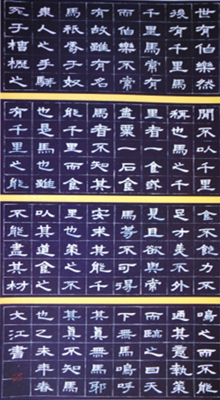 世有伯樂然
後有千里馬
千里馬常有
而伯樂不常
有故雖有名
馬祇辱于奴
隸人之手駢
死于槽櫪之
間不以千里
稱也馬之千
里者一食或
盡粟一石食
馬者不知其
能千里而食
也是馬也雖
有千里之能
食不飽力不
足才美不外
見且欲與常
馬等不可得
安求其能千
里也策之不
以其道食之
不能盡其材
鳴之而不能
通其意執策
而臨之曰天
下無馬嗚呼
其真無馬耶
其真不知馬
也乙未年春
文江書